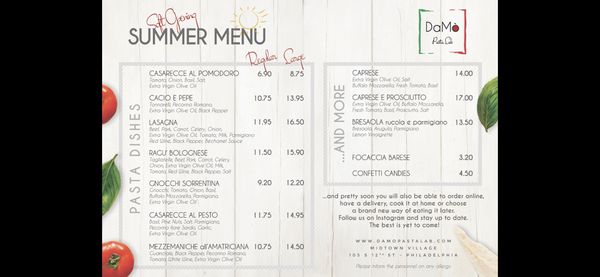 Soft Opening
SUMMER MENU
Regular Large
PASTA DISHES
CASARECCE AL POMODORO 6.90 8.75
Tomato, Onion, Basil, Salt
Extra Virgin Olive Oil
CACIO E PEPE 10.75 13.95
Tonnarelli, Pecorino Romano,
Extra Virgin Olive Oil, Black Pepper
LASAGNA 11.95 16.50
Beef, Pork, Carrot, Celery, Onion,
Extra Virgin Olive Oil, Tomato, Milk, Parmigiano
Red Wine, Black Pepper, Béchamel Sauce
RAGU' BOLOGNESE 11.50 15.90
Tagliatelle, Beef, Pork, Carrot, Celery,
Onion, Extra Virgin Olive Oil, Milk,
Tomato, Red Wine, Black Pepper, Salt
GNOCCHI SORRENTINA 9.20 12.20
Gnocchi, Tomato, Onion, Basil,
Buffalo Mozzarella, Parmigiano,
Extra Virgin Olive Oil
CASARECCE AL PESTO 11.75 14.95
Basil, Pine Nuts, Salt, Parmigiano,
Pecorino Fiore Sardo, Garlic,
Extra Virgin Olive Oil
MEZZEMANICHE all'AMATRICIANA 10.75 14.50
Guanciale, Black Pepper, Pecorino Romano,
Tomato, White Wine, Extra Virgin Olive Oil
DaMò
Pasta Lab
...AND MORE
CAPRESE 14.00
Extra Virgin Olive Oil, Salt
Buffalo Mozzarella, Fresh Tomato, Basil
CAPRESE E PROSCIUTTO 17.00
Extra Virgin Olive Oil, Buffalo Mozzarella,
Fresh Tomato, Basil, Prosciutto, Salt
BRESAOLA rucola e parmigiano 13.50
Bresaola, Arugula, Parmigiano
Lemon Vinaigrette
FOCACCIA BARESE 3.20
CONFETTI CANDIES 4.50
...and pretty soon you will also be able to order online,
have a delivery, cook it at home or choose
a brand new way of eating it later.
Follow us on Instagram and stay up to date.
The best is yet to come!
WWW.DAMOPASTALAB.COM
MIDTOWN VILLAGE
105 S 12TH ST - PHILADELPHIA
Please inform the personnel on any allergy